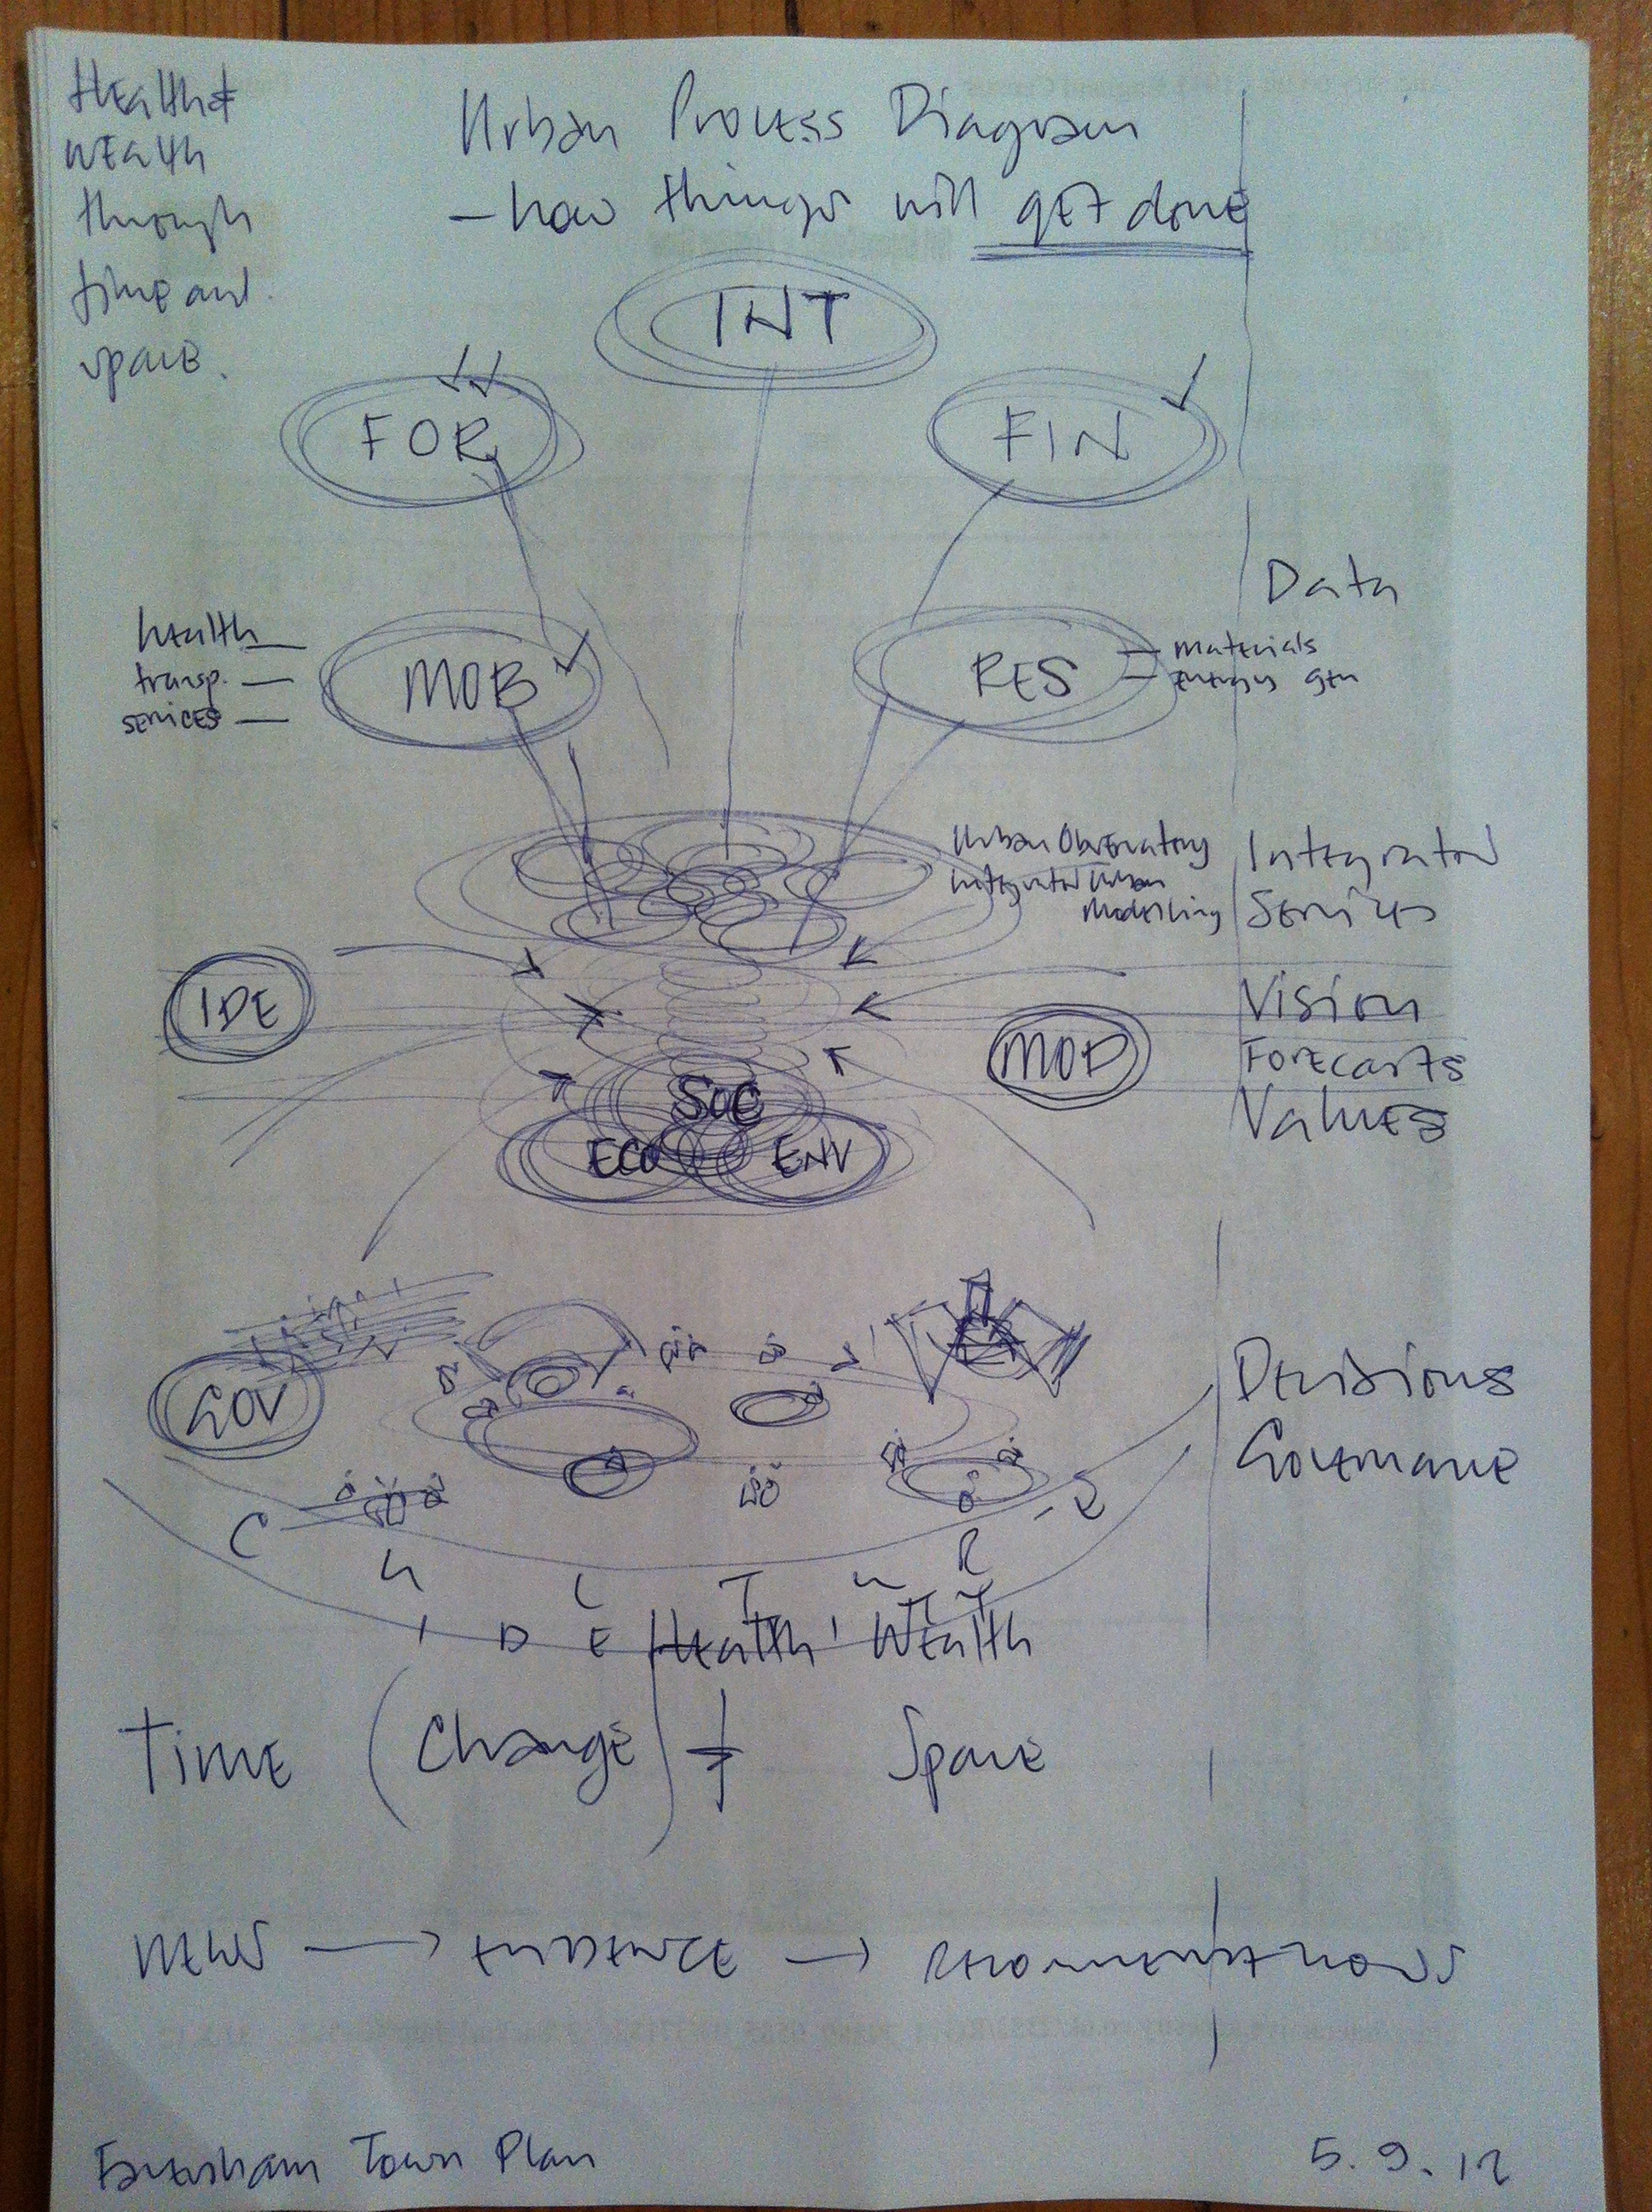 Health &
wealth
through
time and
space.
Urban Process Diagram
– how things will get done
INT
FOR
FIN
Data
health
transp.
services
MOB
RES
materials
energy gen
Urban Observatory
Integrated Urban
Modelling
Services
IDE
MOD
Vision
Forecasts
Values
SOC
ECO
ENV
GOV
Decisions
Governance
Health Wealth
Time (Change) + Space
NEWS → EVIDENCE → RECOMMENDATIONS
Faversham Town Plan
5.9.12